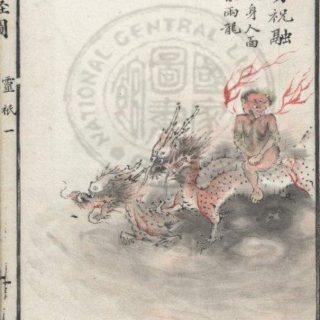 祝融
身人面
兩龍
圖
靈祇一
NATIONAL CENTRAL